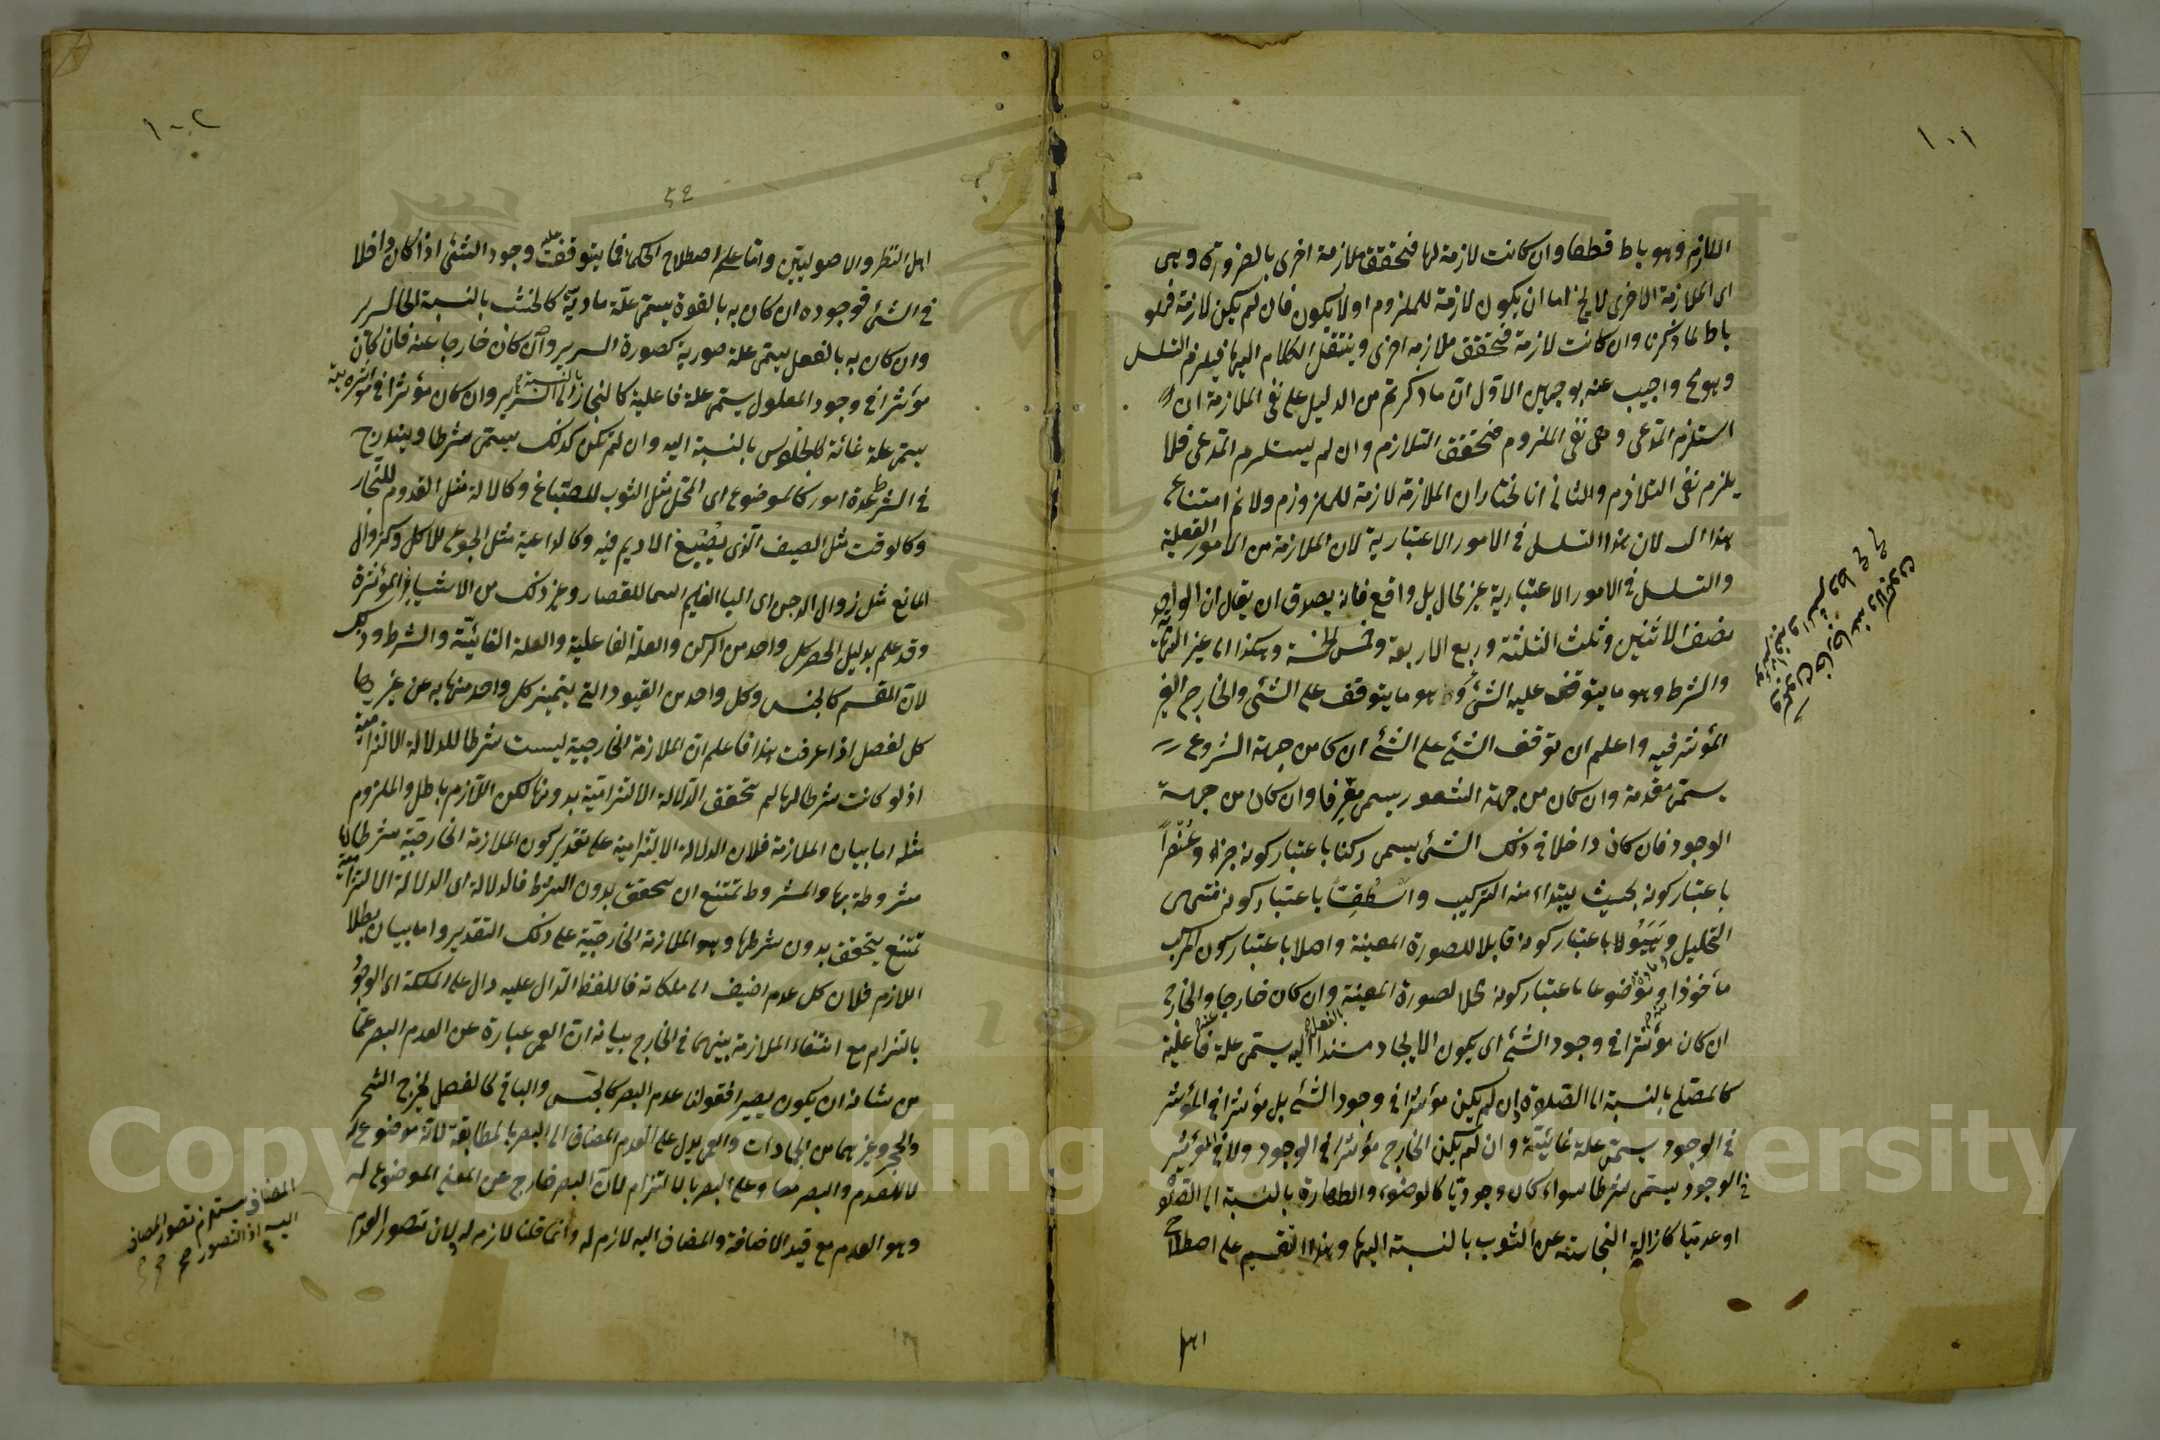 ١٠١
اللازم وهو باط قطعا وان كانت لازمة لها فتحقق ملازمة اخرى بالضرورة وهى
اى الملازمة الاخرى لا يخ اما ان يكون لازمة للملزوم او لا يكون فان لم يكن لازمة فهو
باط لما ذكرنا وان كانت لازمة فتحقق ملازمه اخرى وينتقل الكلام اليها فيلزم التسلسل
وهو مح واجيب عنه بوجهين الاول ان ما ذكرتم من الدليل على نفى الملازمة ان
استلزم المدعى وهى نفى الملزوم فتحقق التلازم وان لم يستلزم المدعى فلا
يلزم نفى التلازم والثانى انا نختار ان الملازمة لازمة للملزوم ولا نم امتناع
هذا لان هذا التسلسل فى الامور الاعتبارية لان الملازمة من الامور العقلية
والتسلسل فى الامور الاعتبارية غير محال بل واقع فانه يصدق ان يقال ان الواحد
نصف الاثنين وثلث الثلثة وربع الاربعة وخمس الخمسة وهكذا الى غير النهاية
والشرط وهو ما يتوقف عليه الشئ هو ما يتوقف على الشئ والخارج الغير
المؤثر فيه واعلم ان توقف الشئ على الشئ ان كا من جهة الشروع
يسمى مقدمة وان كان من جهة الشعور يسمى معرفا وان كان من جهة
الوجود فان كان داخلا فى ذلك الشئ يسمى ركنا باعتبار كونه جزء وعنصراً
باعتبار كونه بحيث يبتداء منه التركيب واسطقسا باعتبار كونه منتهى
التحليل وهيولا باعتبار كونه قابلا للصورة المعينة واصلا باعتبار كون المركب
مأخوذا وموضوعا باعتبار كونه محلا لصورة المعينة وان كان خارجا والخارج
ان كان مؤثرا فى وجود الشئ اى يكون الايجاد مستندا اليه يسمى علة فاعلية
كالمصلى بالنسبة الى الصلوة وان لم يكن مؤثرا فى وجود الشئ بل مؤثرا فى المؤثر
فى الوجود يسمى علة غائيّة وان لم يكن الخارج مؤثرا فى الوجود ولا فى المؤثر
فى الوجود يسمى شرطا سواء كان وجوديّا كالوضوء والطهارة بالنسبة الى الصلوة
او عدميّا كازالة النجاسة عن الثوب بالنسبة اليها وهذا التقسيم على اصطلاح
١٠٢
اهل النظر والاصوليّين واما على اصطلاح الحكماء فما يتوقف عليه وجود الشئ اذا كان داخلا
فى الشئ فوجوده ان كان به بالقوة يسمى علّة ماديّة كالخشب بالنسبة الى السرير
وان كان به بالفعل يسمى علة صورية كصورة السرير وان كان خارجا عنه فان كان
مؤثرا فى وجود المعلول يسمى علة فاعلية كالنجار بالنسبة الى السرير وان كان مؤثرا فى مؤثريته
يسمى علة غائية كالجلوس بالنسبة اليه وان لم يكن كذلك يسمى شرطا ويندرج
فى الشرط عدة امور كالموضوع اى المحل مثل الثوب للصباغ وكالالة مثل القدوم للنجار
وكالوقت مثل الصيف الذى يصبغ الاديم فيه وكالداعية مثل الجوع للاكل وكزوال
المانع مثل زوال الدجن اى الغيم السما للقصار وغير ذلك من الاشياء الغير المؤثرة
وقد علم بدليل الحصر كل واحد من الركن والعلة الفاعلية والعلة الغائيّة والشرط وذلك
لان المقسم كالجنس وكل واحد من القيود التى يتميز كل واحد منها به عن غيرها
كالفصل اذا عرفت هذا فاعلم ان الملازمة الخارجية ليست شرطا للدلالة الالتزامية
اذ لو كانت شرطا لها لم تتحقق الدلالة الالتزاميّة بدونها لكن اللازم باطل والملزوم
مثله اما بيان الملازمة فلان الدلالة الالتزامية على تقدير كون الملازمة الخارجيّة شرطا لها
مشروطة بها والمشروط تمتنع ان يتحقق بدون الشرط فالدلالة اى الدلالة الالتزاميّة
تمتنع يتحقق بدون شرطها وهو الملازمة الخارجيّة على ذلك التقدير واما بيان بطلا
اللازم فلان كل عدم اضيف الى ملكاته فاللفظ الدال عليه دال على الملكة اى الوجود
بالتزام مع انتفاء الملازمة بينهما فى الخارج بيانه ان العمى عبارة عن العدم البصر عمّا
من شانه ان يكون بصيرا فقولنا عدم البصر كالجنس والباقى كالفصل يخرج الشجر
والحجر وغيرهما من الجمادات والعمى يدل على العدم المضاف الى البصر بالمطابقة لانه موضوع له
لا للعدم والبصر معا وعلى البصر بالالتزام لان البصر خارج عن المعنى الموضوع له
وهو العدم مع قيد الاضافة والمضاف اليه لازم له وانما قلنا لازم له لان تصور العدم
المضاف يستلزم تصور المضاف
اليه اذ التصور